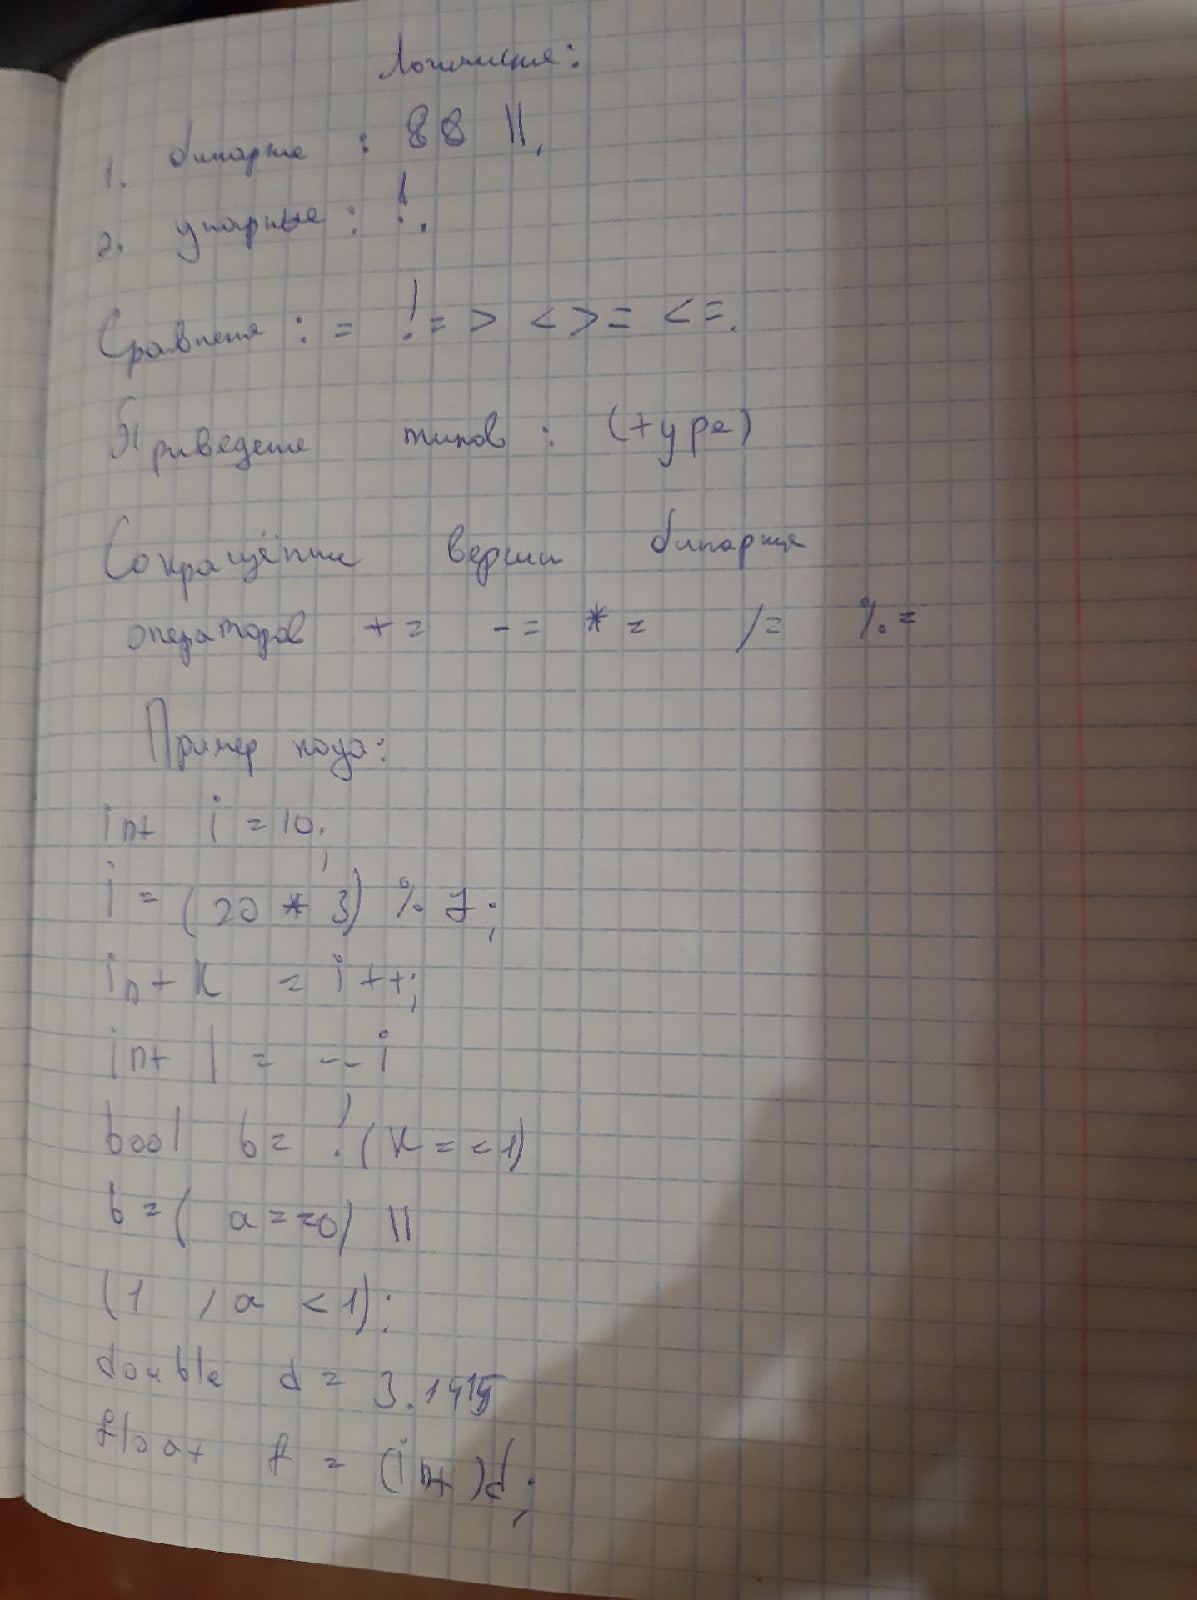 Логические:
1. бинарные : && ||.
2. унарные : !.
Сравнения : = != > < >= <=.
Приведение типов : (type)
Сокращённые версии бинарных
операторов += -= *= /= %=
Пример кода:
int i = 10;
i = (20 * 3) % 7;
int k = i++;
int l = --i
bool b = !(k == 1)
b = ( a == 0) ||
(1 / a < 1);
double d = 3.1415
float f = (int)d;